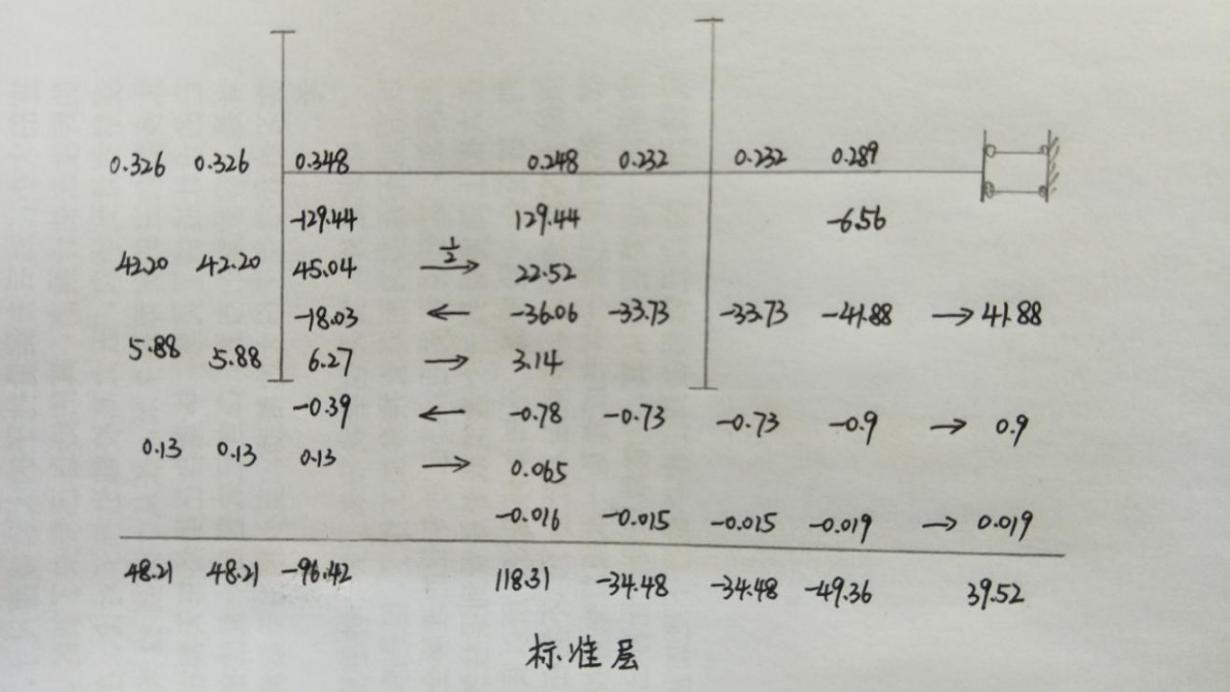 0.326 0.326 0.348 0.248 0.232 0.232 0.289
-129.44 129.44 -6.56
42.20 42.20 45.04 1/2 → 22.52
-18.03 ← -36.06 -33.73 -33.73 -41.88 → 41.88
5.88 5.88 6.27 → 3.14
-0.39 ← -0.78 -0.73 -0.73 -0.9 → 0.9
0.13 0.13 0.13 → 0.065
-0.016 -0.015 -0.015 -0.019 → 0.019
48.21 48.21 -96.42 118.31 -34.48 -34.48 -49.36 39.52
标准层